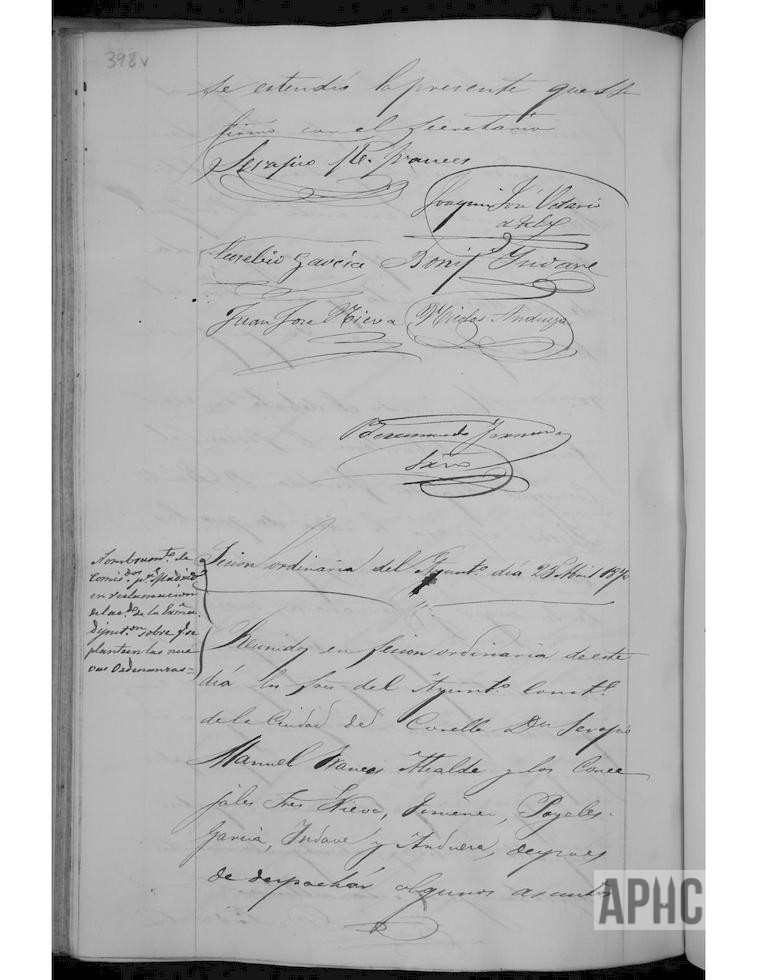 398v
se estendió la presente que SS
firmo con el Secretario
Serapio M. Frances
Joaquin José Octavio
de Toledo
Eusebio Garcia Bonif Indave
Juan Jose Nieva Nicolas Andueza
Bermundo
Srio
Nombramto. de
Comis.dos p.a Madrid
en reclamacion
del ac.do de la Exma.
Diput.on sobre q.e se
planteen las nue
vas Ordenanzas=
Sesion ordinaria del Ayunto. dia 25 Abril 1870
Reunidos en sesion ordinaria de este
dia los Sres del Ayunto. Constl.
de la Ciudad de Corella Dn Serapio
Manuel Frances Alcalde y los Conce
jales Sres Nieva, Jimenez, Poyales.
Garcia, Indave y Andueza, despues
de despachar algunos asuntos
APHC